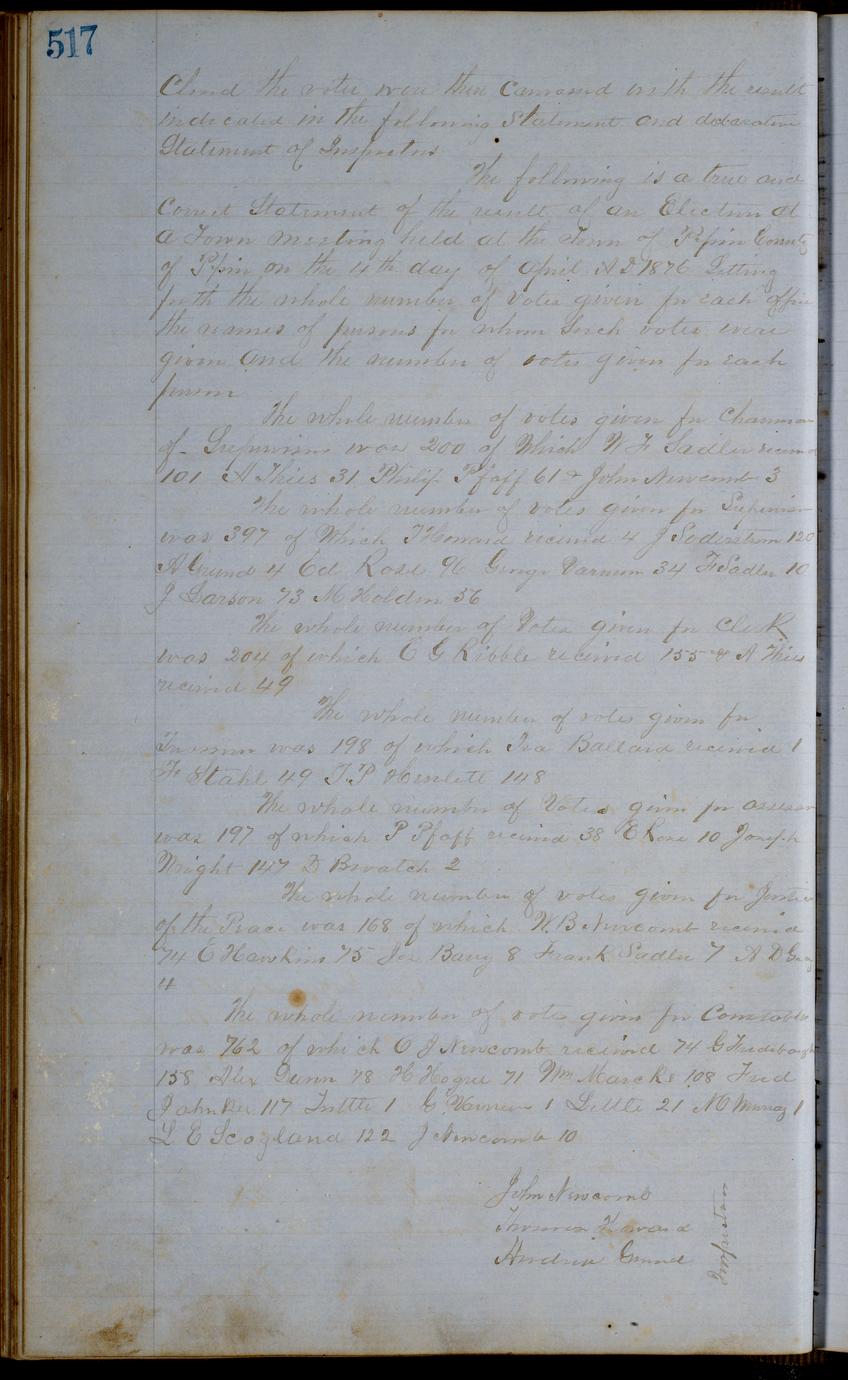 517
Closed the votes were then canvassed with the result
indicated in the following Statement and declaration
Statement of Inspectors
The following is a true and
Correct Statement of the result of an Election at
a Town meeting held at the Town of Pepin County
of Pepin on the 4th day of April A D 1876 Setting
forth the whole number of votes given for each office
the names of persons for whom Such votes were
given and the number of votes given for each
person
The whole number of votes given for Chairman
of Supervisors was 200 of Which W F Sadler received
101 A Thies 31 Philip Pfaff 61 & John Newcomb 3
The whole number of votes given for Supervisor
was 397 of Which T Howard received 4 J Soderstrom 120
A Grund 4 Ed Rose 96 George Varnum 34 F Sadler 10
J Larson 73 M Holden 56
The whole number of Votes given for Clerk
was 204 of which C G Ribble received 155 & A Thies
received 49
The whole number of votes given for
Treasurer was 198 of which Ira Ballard received 1
F Stahl 49 T P Heslete 148
The whole number of Votes given for assessor
was 197 of which P Pfaff received 38 E Rose 10 Joseph
Wright 147 D 2
The whole number of votes given for Justice
of the Peace was 168 of which W B Newcomb received
74 E Hawkins 75 Jos Barry 8 Frank Sadler 7 A D Gray
4
The whole number of votes given for Constable
was 762 of which O J Newcomb received 74 G
158 Alex Dunn 78 H Hogue 71 Wm Marcks 108 Fred
Jahnke 117 Tuttle 1 G Varnum 1 Little 21 M Murray 1
L E Scogland 122 J Newcomb 10
John Newcomb
Thomas Howard
Grund
Inspectors